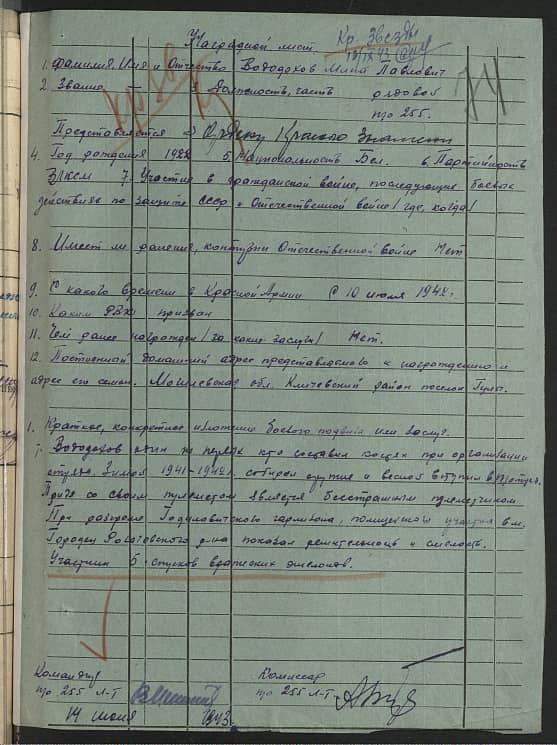 Наградной лист
Кр. Звезды
1. Фамилия, Имя и Отчество Вододохов Мина Павлович
2. Звание — 3 Должность, часть рядовой
п/о 255.
Представляется к Ордену Красного Знамени
4. Год рождения 1922 5. Национальность Бел. 6 Партийность
ВЛКСМ 7 Участие в гражданской войне, последующие боевых
действиях по защите СССР и Отечественной войне /где, когда/
8. Имеет ли ранения, контузии Отечественной войне Нет
9. С какого времени в Красной Армии С 10 июля 1942 г.
10. Каким РВК призван
11. Чем ранее награжден /за какие заслуги/ Нет.
12. Постоянной домашний адрес представляемого к награждению и
адрес его семьи. Могилевская обл. Кличевский район поселок
1. Краткое, конкретное изложение боевого подвига или заслуг.
Вододохов один из первых кто составил костяк при организации
Зимой 1941-1942 г. собирал оружие и весной вступил в
со своим пулеметом является бесстрашным пулеметчиком
При разгроме гарнизона, полицейский участка в м.
Городец района показал решительность и смелость.
Участник 5 спусков вражеских эшелонов.
74
Командир
п/о 255 Л-Т
Комиссар
п/о 255 Л-Т
14 июля 1943 г.